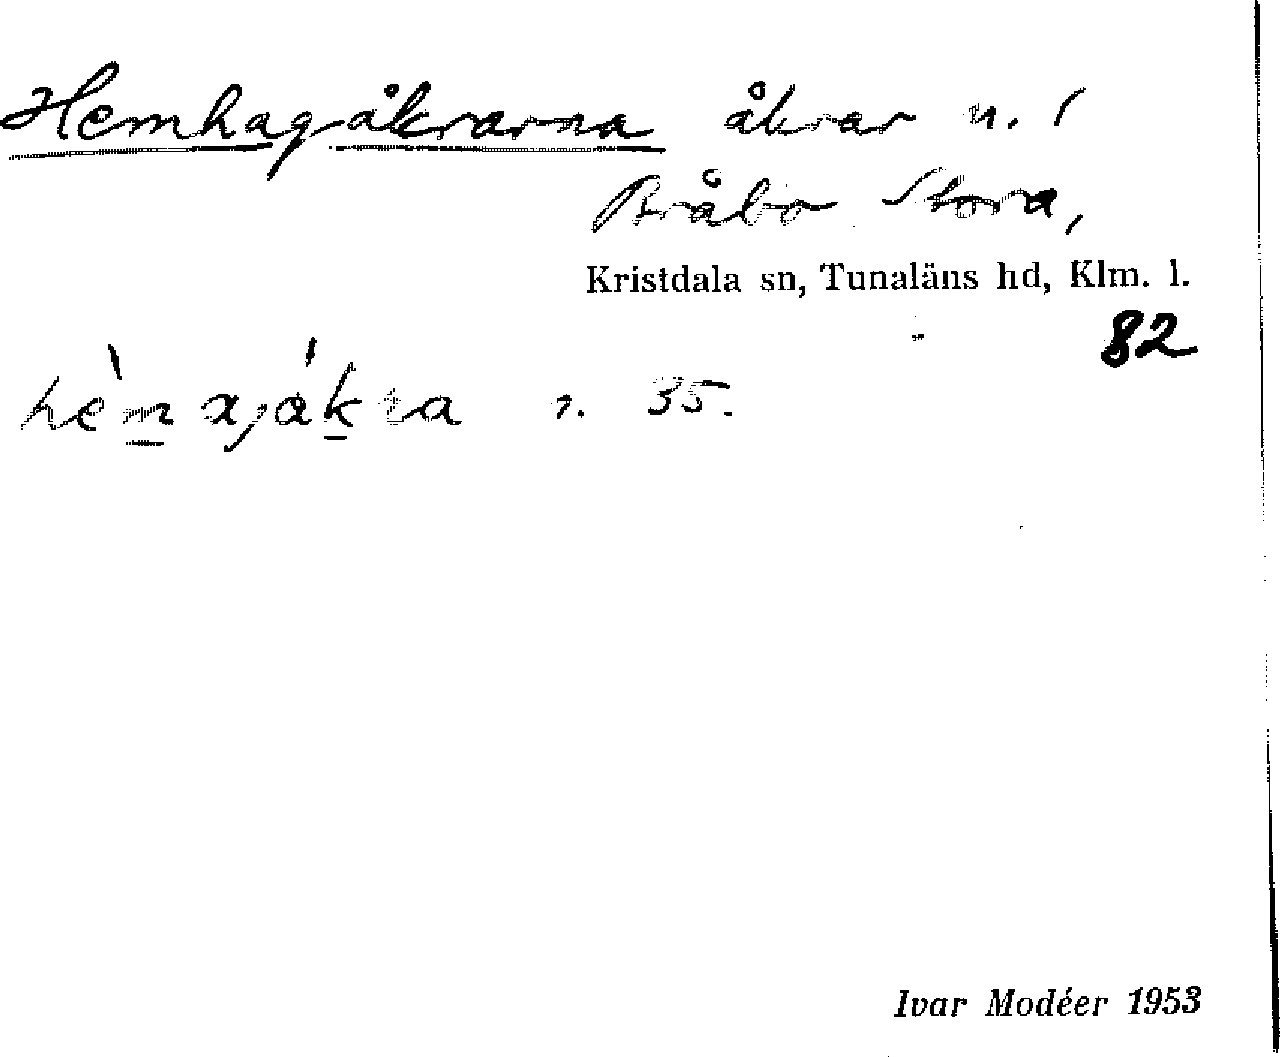 Hemhagåkrarna åkrar n. 1
Bråbo Stora,
Kristdala sn, Tunaläns hd, Klm. l.
82
35.
Ivar Modéer 1953